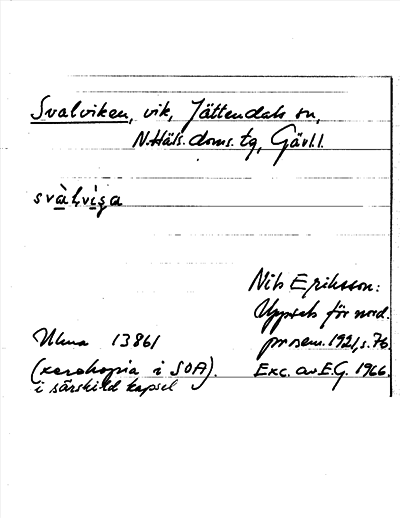 Svalviken, vik, Jättendals sn,
N.Häls. doms. tg, Gävl.l.
svàl,vi̱ga
Nils Eriksson:
Uppsats för nord.
prosem. 1921, s. 76.
Exc. av E.G. 1966.
Ulma 13861
(xerokopia i SOA).
i särskild kapsel